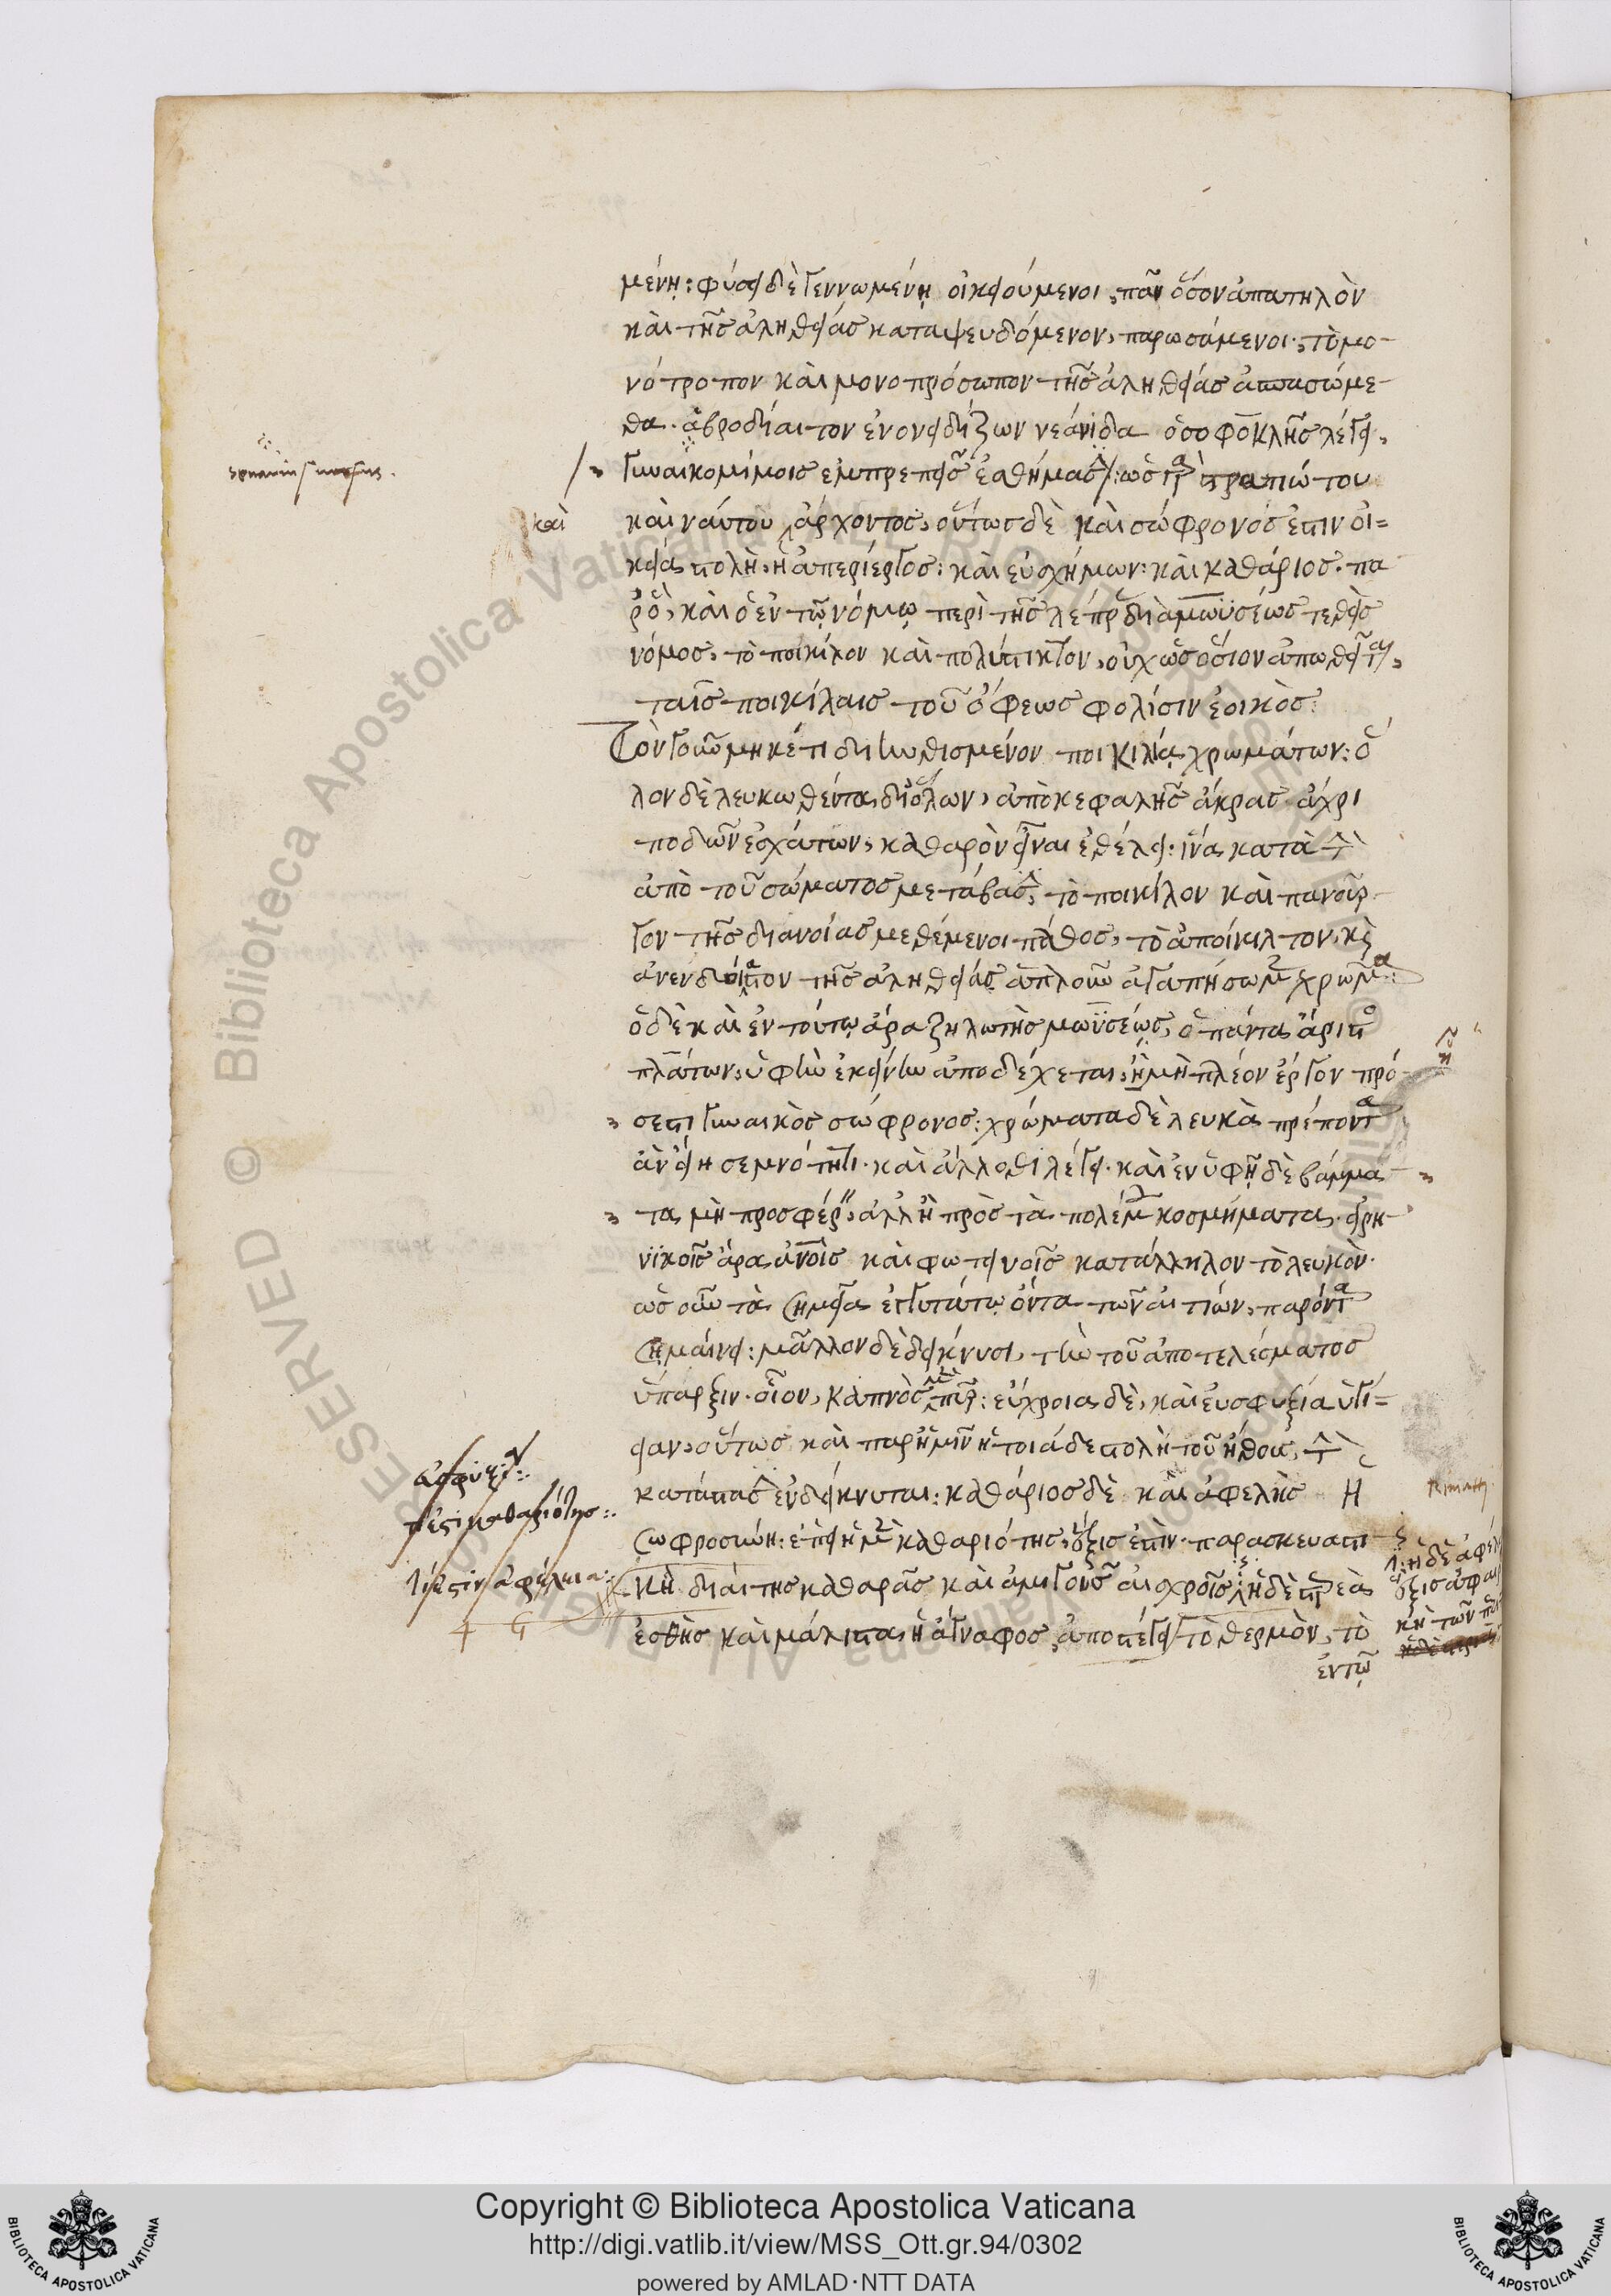 μένη: φύσει δὲ γεννωμένη οἰκειούμενοι, πᾶν ὅσον ἀπατηλὸν
καὶ τῆς ἀληθείας καταψευδόμενον, παρωσάμενοι, τὸ μο-
νότροπον καὶ μονοπρόσωπον τῆς ἀληθείας ἀσπασώμε-
θα. ἁβροδίαιτον ἐνονειδίζων νεάνιδα ὁ σοφοκλῆς λέγει,
γυναικομίμοις ἐμπρεπεῖς ἐσθήμασιν: ὡς γὰρ στρατιώτου
καὶ ναύτου ἄρχοντος, οὕτως δὲ καὶ σώφρονός ἐστιν οἰ=
καὶ
κεία στολὴ, ἡ ἀπερίεργος: καὶ εὐσχήμων: καὶ καθάριος. πα
ρὸ, καὶ ὁ ἐν τῷ νόμῳ περὶ τῆς λέπρας διὰ μωϋσέως τεθεὶς
νόμος, τὸ ποικίλον καὶ πολύστικτον, οὐχ ὡς ὅσιον ἀπωθεῖται,
ταῖς ποικίλαις τοῦ ὄφεως φολίσιν ἐοικὸς:
Τὸν γοῦν μηκέτι διηνθισμένον ποικιλίᾳ χρωμάτων: ὅ
λον δὲ λευκωθέντα δι' ὅλων, ἀπὸ κεφαλῆς ἄκρας ἄχρι
ποδῶν ἐσχάτων, καθαρὸν εἶναι ἐθέλει. ἵνα κατὰ τὴν
ἀπὸ τοῦ σώματος μετάβασιν, τὸ ποικίλον καὶ πανοῦρ
γον τῆς διανοίας μεθέμενοι πάθος, τὸ ἀποίκιλτον, καὶ
ἀνενδοίαστον τῆς ἀληθείας ἁπλοῦν ἀγαπήσωμεν χρῶμα:
ὁ δὲ καὶ ἐν τούτῳ ἄρα ζηλωτὴς μωϋσέως, ὁ πάντα ἄριστος
πλάτων, ὑφὴν ἐκείνην ἀποδέχεται, ἡ μὴ πλέον ἔργον πρό
σεστι γυναικὸς σώφρονος: χρώματα δὲ λευκὰ πρέποντα
ἂν εἴη σεμνότητι. καὶ ἄλλοθι λέγει. καὶ ἐν ὑφῇ δὲ βάμμα
τα μὴ προσφέρειν, ἀλλ' ἢ πρὸς τὰ πολέμου κοσμήματα. εἰρη-
νικοῖς ἄρα ἀνοις καὶ φωτεινοῖς κατάλληλον τὸ λευκὸν.
ὡς οὖν τὰ σημεῖα ἐγγυτάτω ὄντα τῶν αἰτιῶν, παρόντα
σημαίνει: μᾶλλον δὲ δείκνυσι, τὴν τοῦ ἀποτελέσματος
ὕπαρξιν. οἷον, καπνὸς μὲν πῦρ: εὔχροια δὲ, καὶ εὐσφυξία ὑγί=
ειαν, οὕτως καὶ παρ' ἡμῖν ἡ τοιάδε στολὴ τοῦ ἤθους τὴν
κατάστασιν ἐνδείκνυται: καθάριος δὲ καὶ ἀφελὴς ἡ
σωφροσύνη: ἐπεὶ ἡ μὲν καθαριότης, ἕξις ἐστὶν παρασκευαστι
κὴ διαίτης καθαρᾶς καὶ ἀμιγοῦς αἰσχροῖς, ἡ δὲ στερεὰ
ἐσθὴς καὶ μάλιστα, ἡ ἄγναφος, ἀποστέγει τὸ θερμὸν, τὸ
ἐν τῷ
τί ἐστι καθαριότης:
τί ἐστιν ἀφέλεια:
ἡ δὲ ἀφέλ
ἕξις ἀφαιρ
κὴ τῶν πε
Copyright © Biblioteca Apostolica Vaticana
http://digi.vatlib.it/view/MSS_Ott.gr.94/0302
powered by AMLAD·NTT DATA
BIBLIOTECA APOSTOLICA VATICANA
BIBLIOTECA APOSTOLICA VATICANA